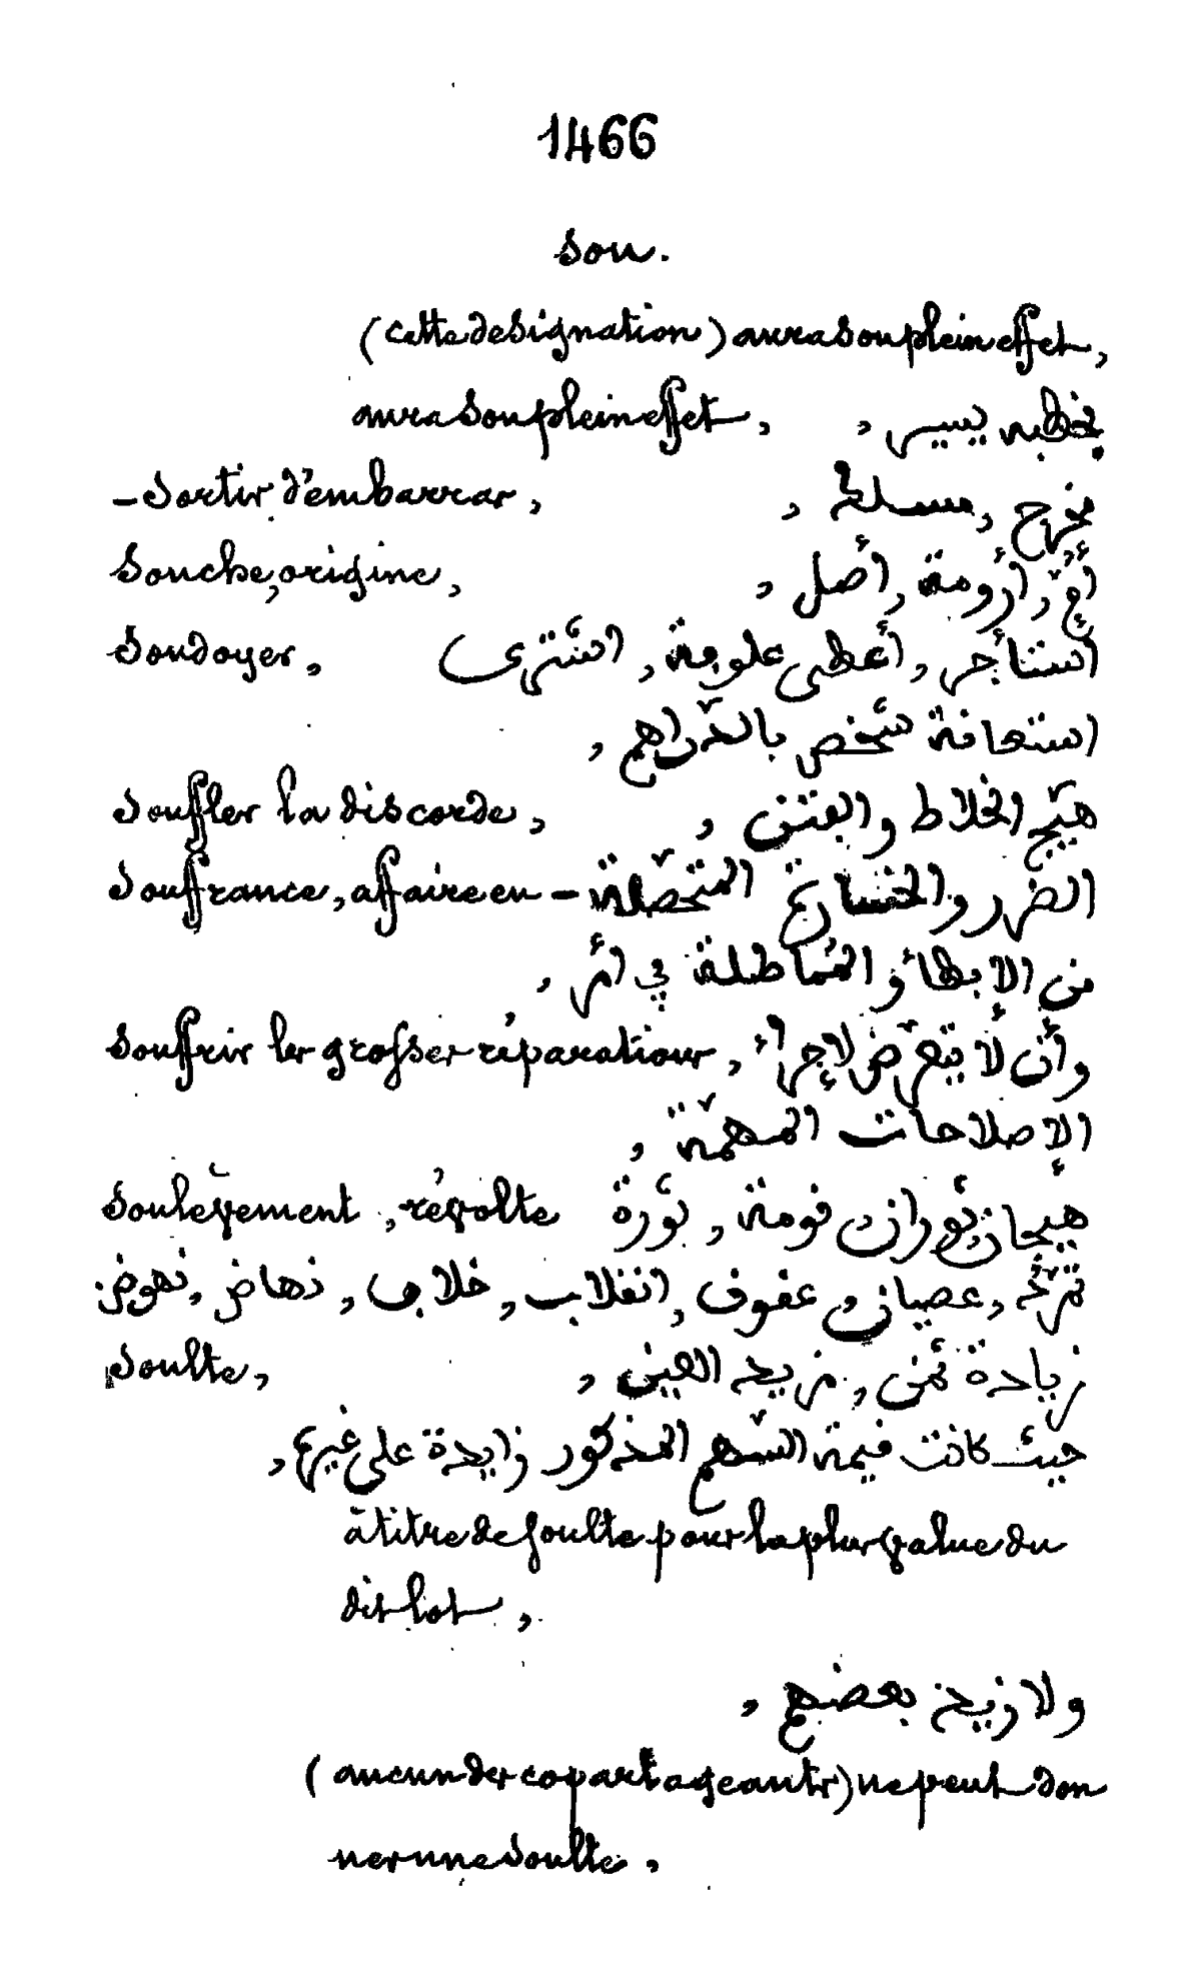 1466
Sou.
(cette designation) aura son plein effet,
aura son plein effet, يسير,
– Sortir d'embarras, مخرج, مسلك,
Souche, origine, أرومة, أصل,
Soudoyer, استأجر, أعطى علوفة, اشترى
استعانة شخص بالدّراهم,
Souffler la discorde, هيّج الخلاط والفتن,
Souffrance, affaire en – الضرر والخسارة المتحصّلة
من الإبطاء والمُماطلة في أمر,
Souffrir les grosses réparations, وأن لا يتعرّض لإجراء
الإصلاحات المهمّة,
Soulèvement, révolte هيجان ثوران قومة, ثورة
عصيان, عقوق, انقلاب, خلاف, نهاض, نهوض.
Soulte, زيادة ثمن, مزيد العين,
حيث كانت قيمة السّهم المذكور زايدة على غيرها,
à titre de soulte pour la plus value du
dit lot,
ولا زيد بعضهم,
(aucun des copartageants) ne peut don
ner une soulte,